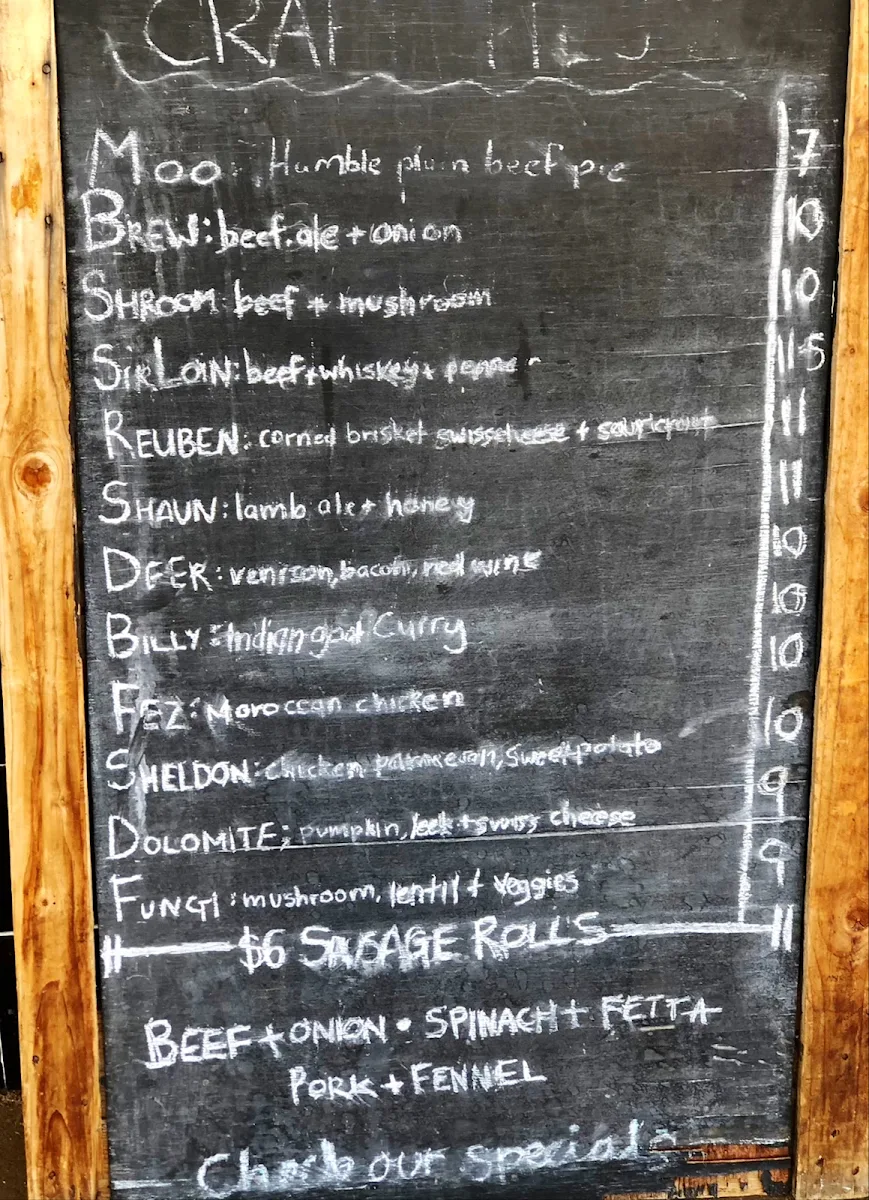 CRAFT PIES
Moo: Humble plain beef pie 7
BREW: beef. ale + onion 10
SHROOM: beef + mushroom 10
SIRLOIN: beef + whiskey + 11.5
REUBEN: corned brisket swisscheese + 11
SHAUN: lamb ale + honey 11
DEER: venison, bacon, red wine 10
BILLY: Indian goat Curry 10
FEZ: Moroccan chicken 10
SHELDON: chicken parmesan, sweetpotato 10
DOLOMITE: pumpkin, leek + swiss cheese 9
FUNGI: mushroom, lentil + veggies 9
$6 SAUSAGE ROLLS
BEEF + ONION • SPINACH + FETTA
PORK + FENNEL
Check our specials